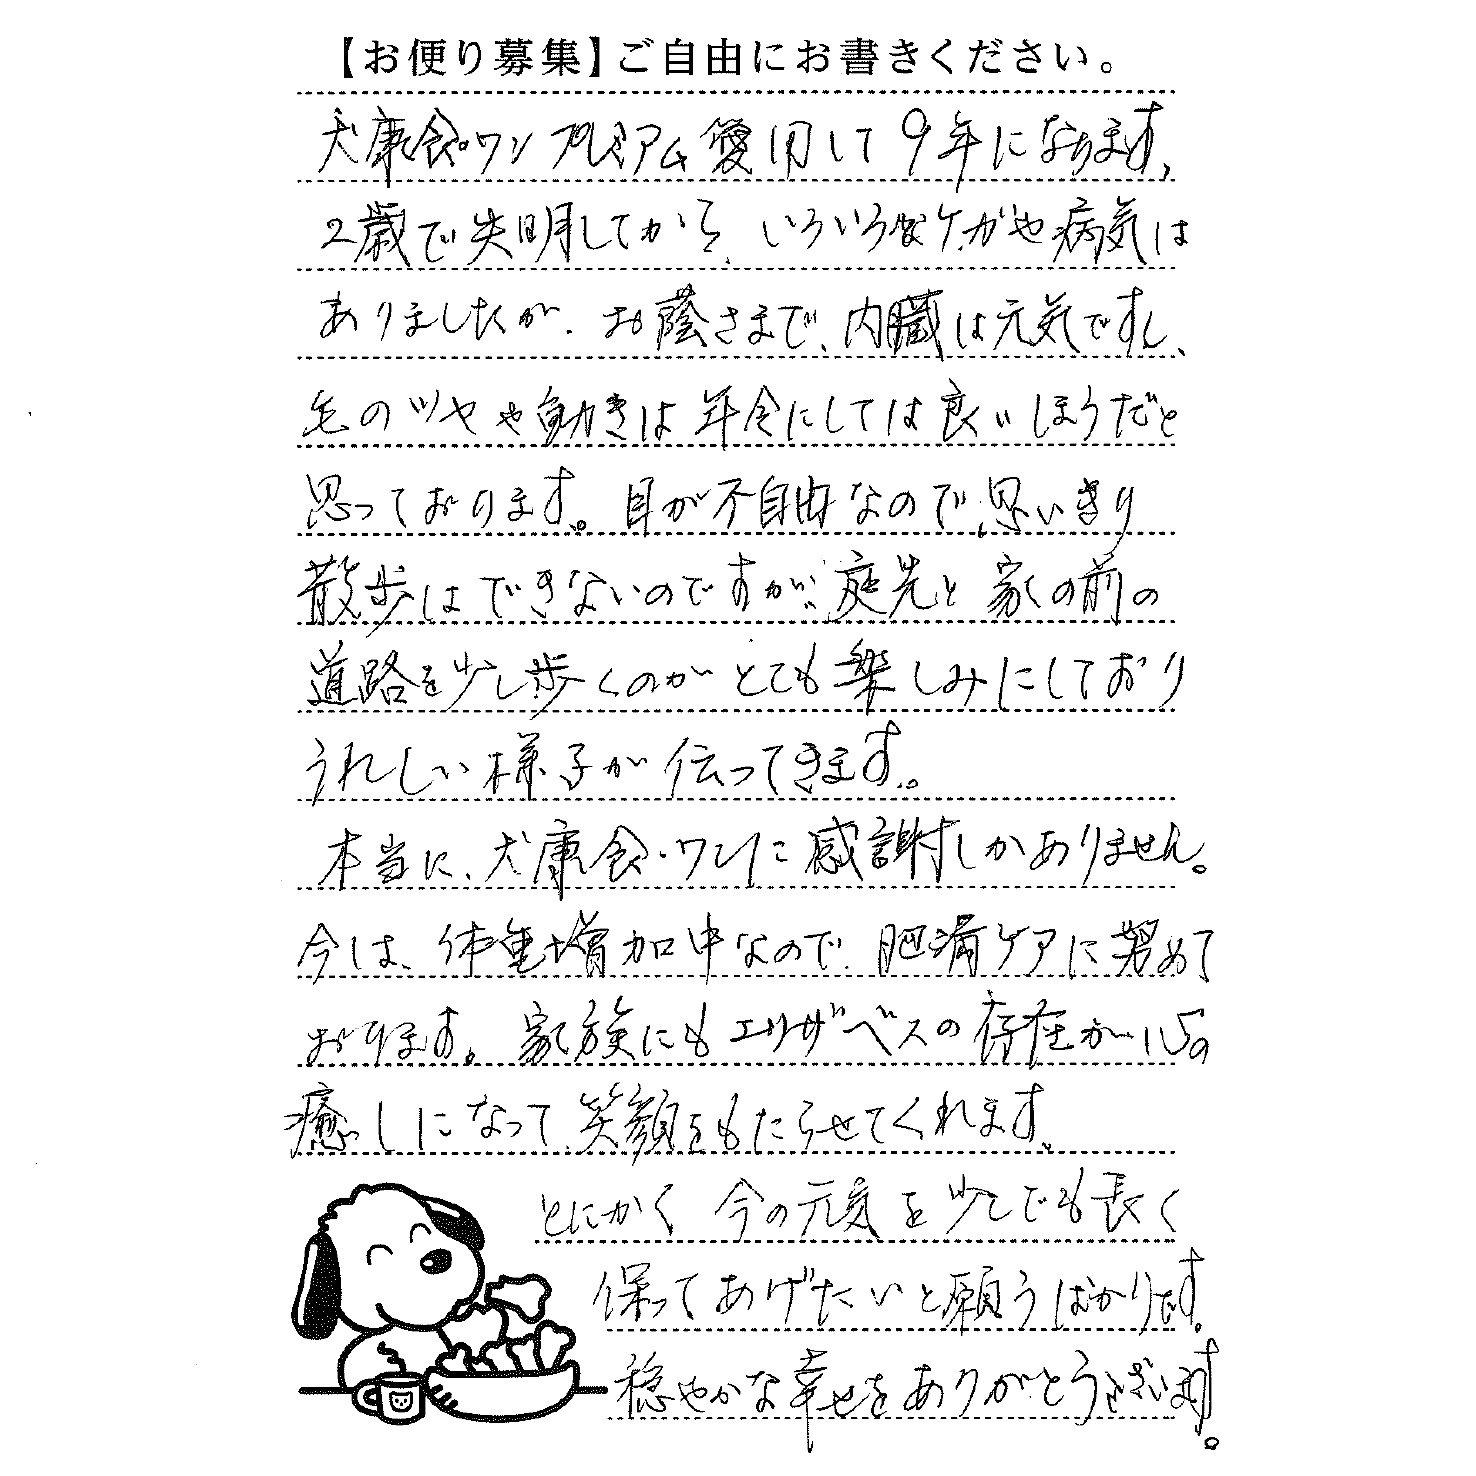 【お便り募集】ご自由にお書きください。
犬康食・ワン プレミアム愛用して9年になります、
2歳で失明してから、いろいろなケガや病気は
ありましたが、お蔭さまで、内臓は元気ですし、
毛のツヤや動きは年令にしては良いほうだと
思っております。目が不自由なので、思いきり
散歩はできないのですが、庭先と家の前の
道路を少し歩くのがとても楽しみにしており
うれしい様子が伝ってきます。
本当に、犬康食・ワンに感謝しかありません。
今は、体重増加中なので、肥満ケアに努めて
おります。家族にもエリザベスの存在が心の
癒しになって、笑顔をもたらせてくれます。
とにかく今の元気を少しでも長く
保ってあげたいと願うばかりです。
穏やかな幸せをありがとうございます。